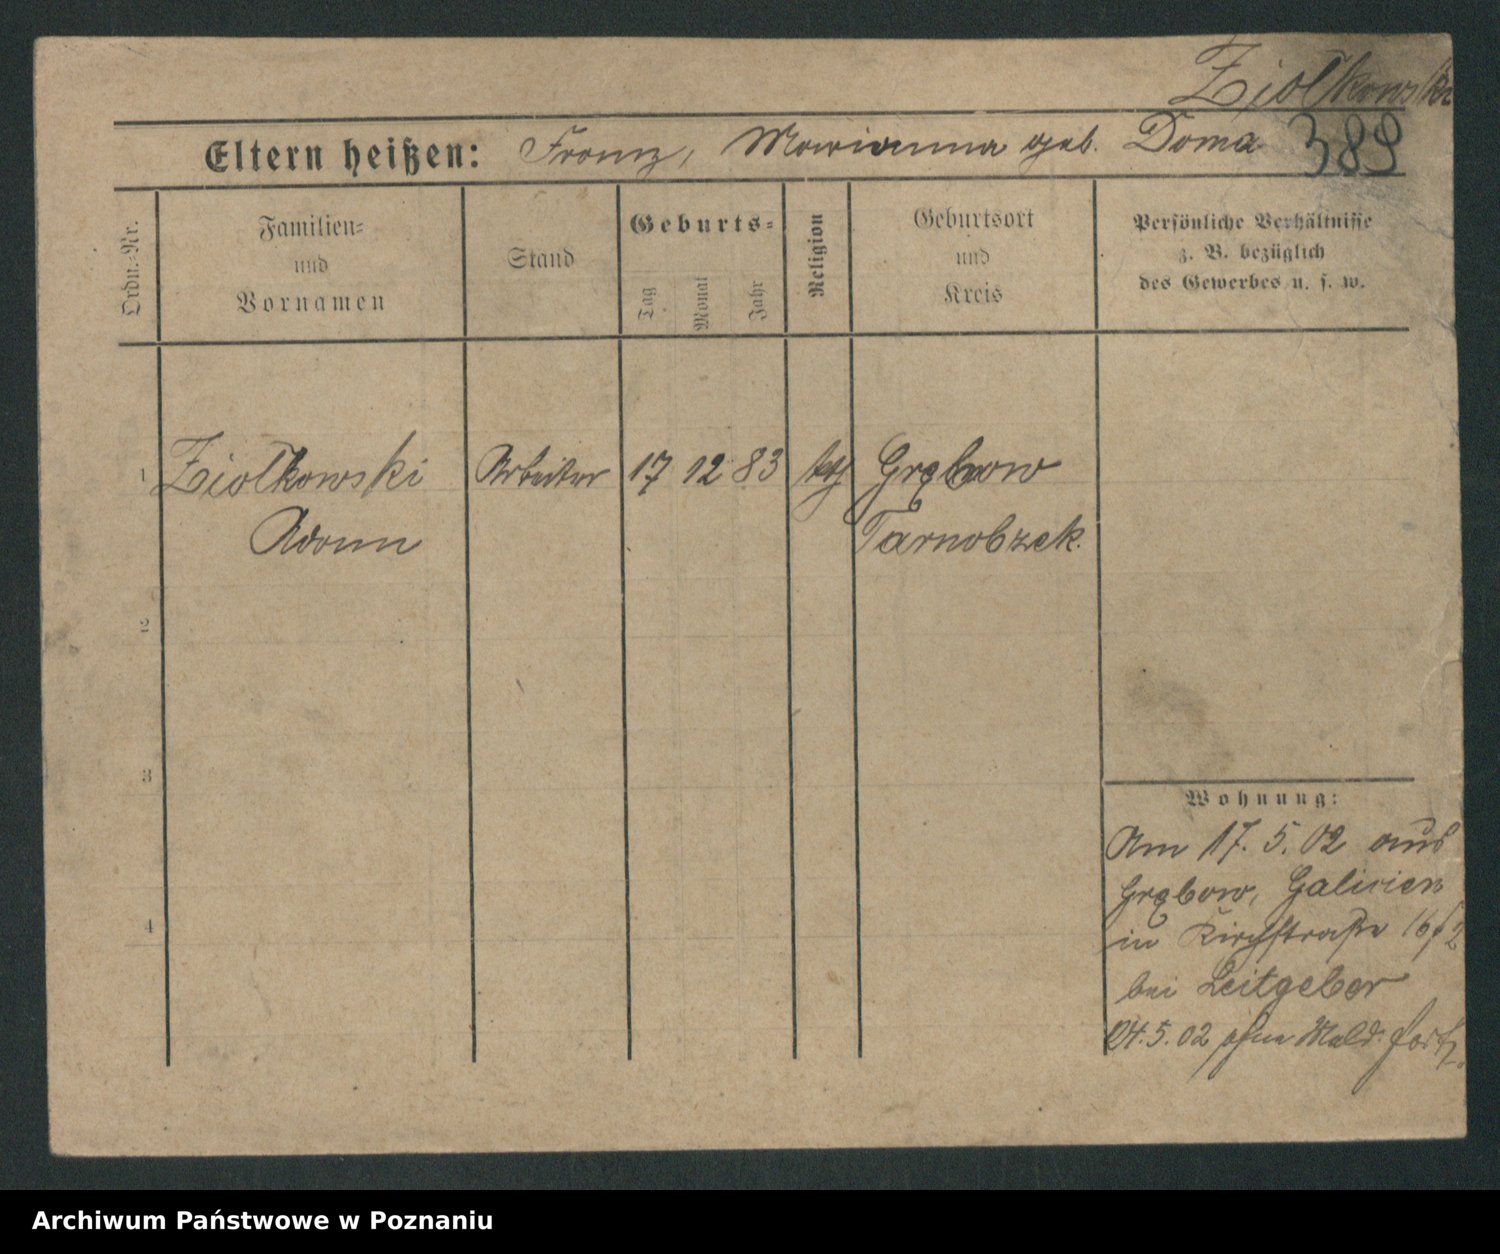 Ziolkowski
Eltern heißen: Franz, Marianna geb. Doma 389
Ordn.-Nr.
Familien-
und
Vornamen
Stand
Geburts-
Tag
Monat
Jahr
Religion
Geburtsort
und
Kreis
Persönliche Verhältnisse
z. B. bezüglich
des Gewerbes u. s. w.
1 Ziolkowski Arbeiter 17 12 83 kth Grębow
Adam Tarnobzek.
2
3
4
Wohnung:
Am 17. 5. 02 aus
Grębow, Galicien
in Kirchstraße 16/2
bei Leitgeber
24.5.02 ohne Meld. fort.
Archiwum Państwowe w Poznaniu